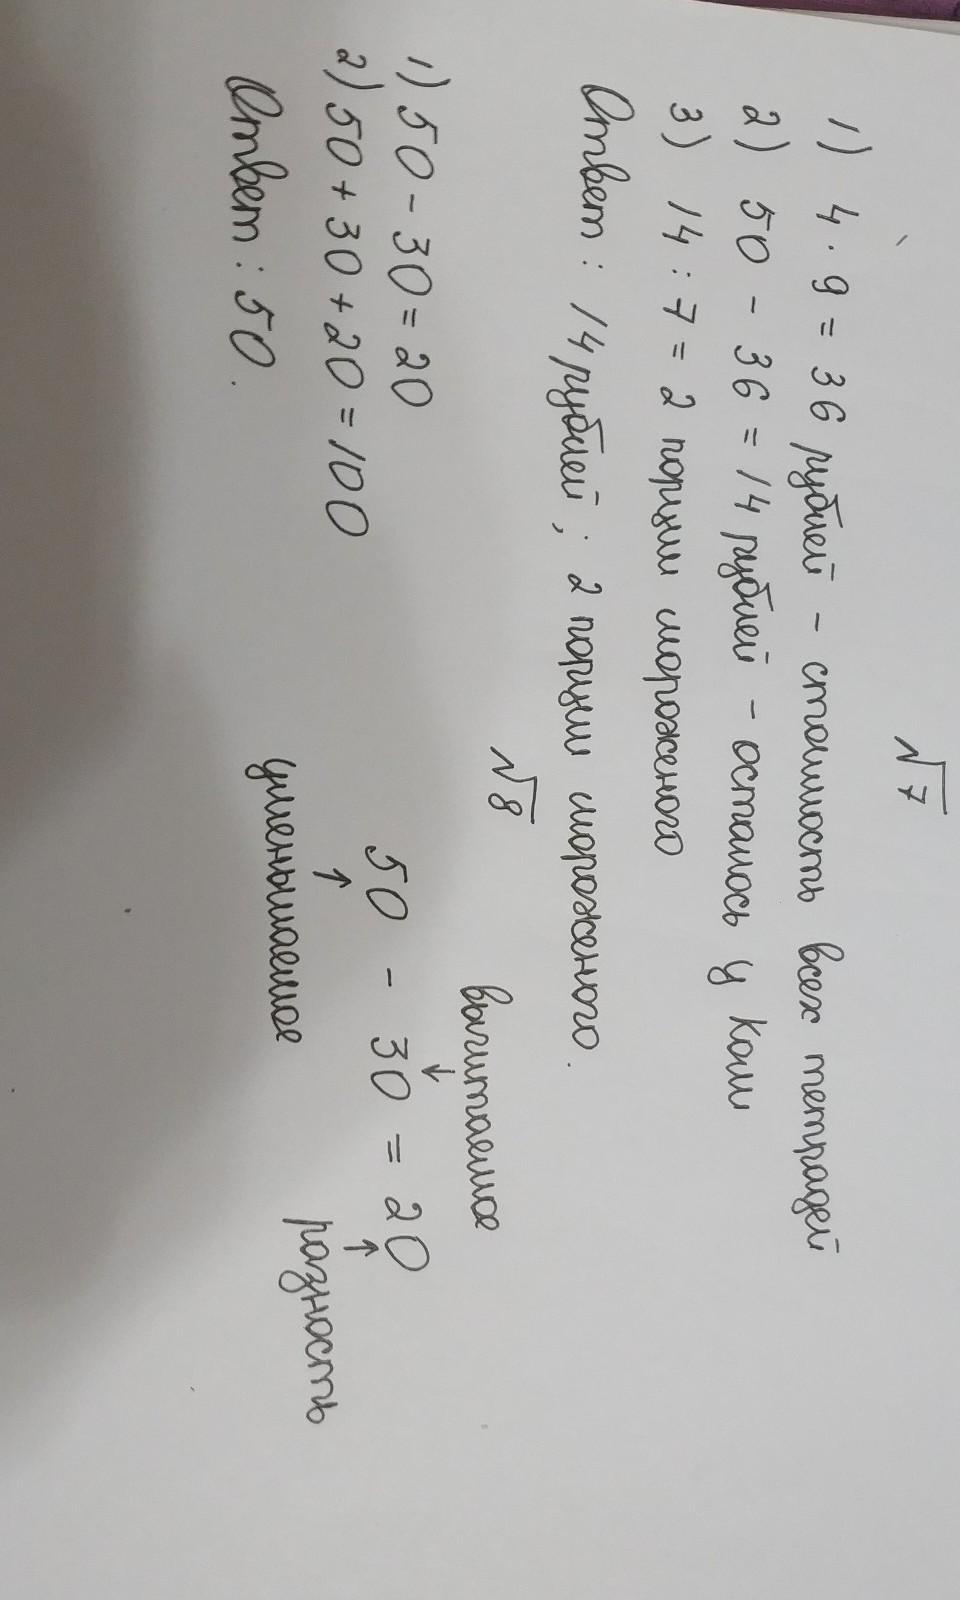 √7
1) 4 · 9 = 36 рублей - стоимость всех тетрадей
2) 50 - 36 = 14 рублей - осталось у Коли
3) 14 : 7 = 2 порции мороженого
Ответ: 14 рублей; 2 порции мороженого.
√8
вычитаемое
1) 50 - 30 = 20
50 - 30 = 20
2) 50 + 30 + 20 = 100
уменьшаемое
разность
Ответ: 50.